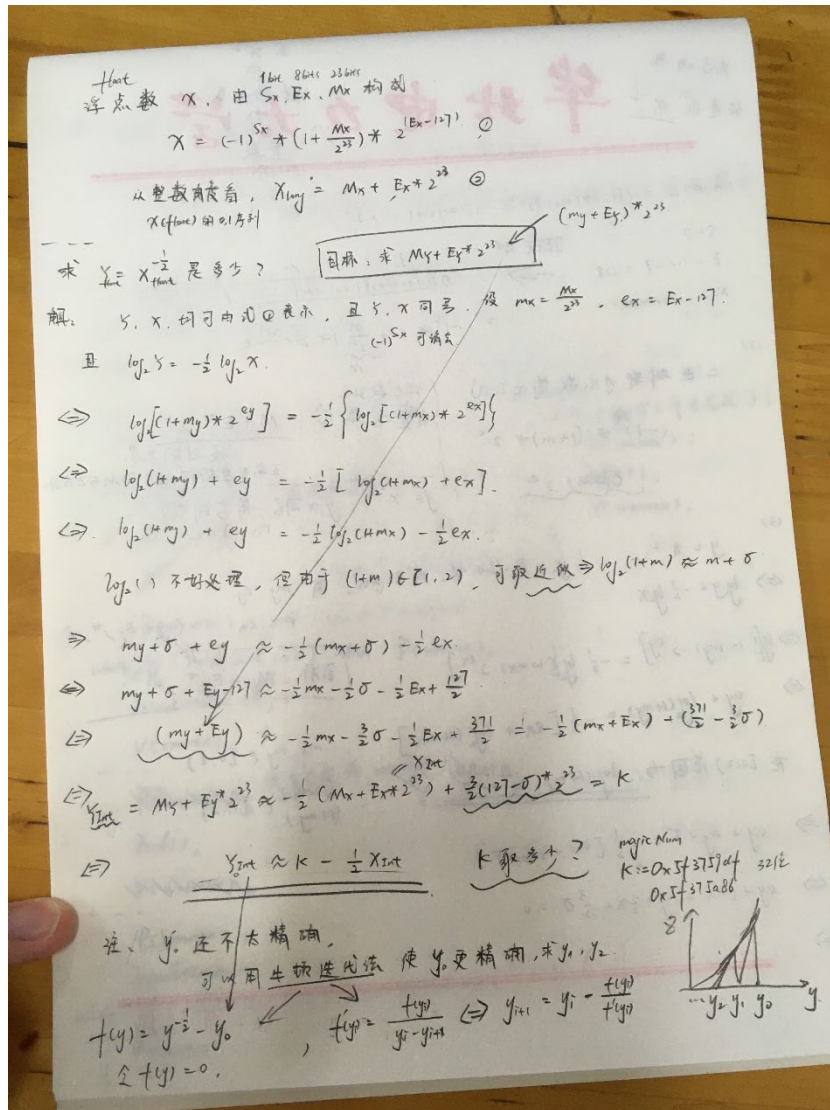 float 1bit 8bits 23bits
浮点数 X, 由 Sx, Ex, Mx 构成
X = (-1)^Sx * (1 + Mx/2^23) * 2^(Ex-127) ①
从整数角度看, Xlong = Mx + Ex * 2^23 ②
X(float) 的 0,1 序列
(my + Ey) * 2^23
目标: 求 My + Ey * 2^23
求 Yfloat = Xfloat^(-1/2) 是多少?
解: Y, X 均可由式①表示, 且 Y, X 同号. 设 mx = Mx/2^23, ex = Ex-127.
(-1)^Sx 可消去
且 log₂Y = -1/2 log₂X.
⇔ log₂[(1+my) * 2^ey] = -1/2 {log₂[(1+mx) * 2^ex]}
⇔ log₂(1+my) + ey = -1/2 [log₂(1+mx) + ex].
⇔. log₂(1+my) + ey = -1/2 log₂(1+mx) - 1/2 ex.
log₂( ) 不好处理, 但由于 (1+m)∈[1,2), 可取近似 ⇒ log₂(1+m) ≈ m + σ
⇒ my + σ + ey ≈ -1/2 (mx + σ) - 1/2 ex.
⇔ my + σ + Ey-127 ≈ -1/2 mx - 1/2 σ - 1/2 Ex + 127/2
⇔ (my + Ey) ≈ -1/2 mx - 3/2 σ - 1/2 Ex + 371/2 = -1/2 (mx + Ex) + (371/2 - 3/2 σ)
XInt
⇔ YInt = My + Ey * 2^23 ≈ -1/2 (Mx + Ex * 2^23) + 3/2 (127-σ) * 2^23 = K
⇔ Y0Int ≈ K - 1/2 XInt K 取多少?
magic Num
K := 0x5f3759df 32位
0x5f375a86
注、y₀ 还不太精确,
可以用牛顿迭代法 使 y₀ 更精确, 求 y₁, y₂
f(y) = y^(-1/2) - y₀, f'(yi) = f(yi)/(yi - yi+1) ⇔ yi+1 = yi - f(yi)/f'(yi)
令 f(y) = 0.
Z
... y₂ y₁ y₀ y